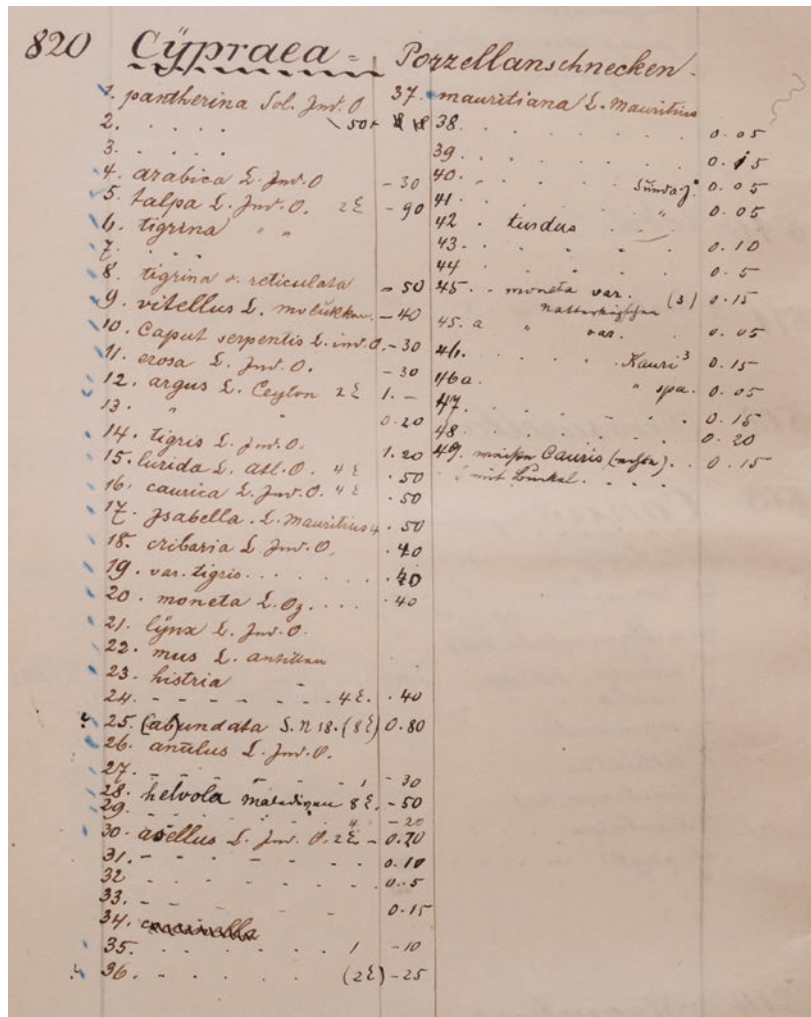 820 Cÿpraea = Porzellanschnecken.
1. pantherina Sol. Ind. O
2. . . . . . 50
3. . . . . .
4. arabica L. Ind. O - 30
5. talpa L. Ind. O. 2 - 90
6. tigrina " "
7. . . . .
8. tigrina v. reticulata - 50
9. vitellus L. molukken. - 40
10. Caput serpentis L. ind. O. - 30
11. erosa L. Ind. O. - 30
12. argus L. Ceylon 2 1. -
13. " " 0.20
14. tigris L. Ind. O. 1.20
15. lurida L. atl. O. 4 . 50
16. caurica L. Ind. O. 4 . 50
17. Isabella. L. Mauritius 4 . 50
18. cribaria L. Ind. O. . 40
19. var. tigris . . . . . . 40
20. moneta L. Oz. . . . . 40
21. lÿnx L. Ind. O.
22. mus L. antillen
23. histria
24. - - - - - - - 4 . 40
25. (ab)undata S. N 18. (8) 0.80
26. anulus L. Ind. O.
27. - - - - - - 1 - 30
28. helvola 8 - 50
29. - - - - - 4 - 20
30. asellus L. Ind. O. 2 - 0.70
31. - - - - - - 0.10
32 - - - - - - 0.5
33. - - - - - 0.15
34.
35. . . . . . . 1 - 10
36. . . . . . . (2) - 25
37. mauritiana L. Mauritius
38. . . . . . . . 0.05
39. . . . . . . . 0.15
40. . . . . Sunda J. 0.05
41. . . . . " 0.05
42. turdus . . .
43. . . . . . . . 0.10
44 . . . . . . . 0.5
45. - moneta var. (3) 0.15
45. a " var. 0.05
46. . . . . Kauri 3 0.15
46a. " 0.05
47. . . . . . . . 0.15
48. . . . . . . . 0.20
49. Cauris (echte). . 0.15
" mit . . . .